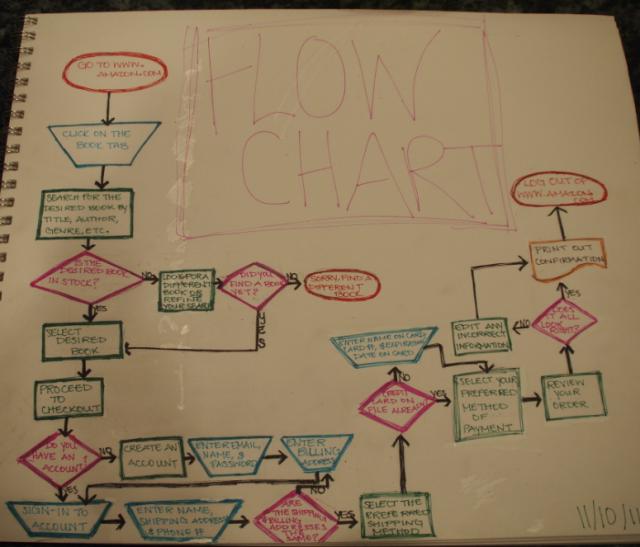 FLOW
CHART
GO TO WWW.
AMAZON.COM
CLICK ON THE
BOOK TAB
SEARCH FOR THE
DESIRED BOOK BY
TITLE, AUTHOR,
GENRE, ETC.
IS THE
DESIRED BOOK
IN STOCK?
NO
LOOK FOR A
DIFFERENT
BOOK OR
REFINE
YOUR SEARCH
DID YOU
FIND A BOOK
YET?
NO
SORRY, FIND A
DIFFERENT
BOOK
YES
YES
SELECT
DESIRED
BOOK
PROCEED
TO
CHECKOUT
DO YOU
HAVE AN
ACCOUNT?
NO
CREATE AN
ACCOUNT
ENTER EMAIL,
NAME, &
PASSWORD
ENTER
BILLING
ADDRESS
YES
SIGN-IN TO
ACCOUNT
ENTER NAME,
SHIPPING ADDRESS
& PHONE #
ARE
THE SHIPPING
& BILLING
ADDRESSES
THE
SAME?
NO
YES
SELECT THE
PREFERRED
SHIPPING
METHOD
CREDIT
CARD ON
FILE ALREADY?
NO
ENTER NAME ON CARD
CARD #, & EXPIRATION
DATE ON CARD
YES
SELECT YOUR
PREFERRED
METHOD
OF
PAYMENT
REVIEW
YOUR
ORDER
DOES
IT ALL
LOOK
RIGHT?
NO
EDIT ANY
INCORRECT
INFORMATION
YES
PRINT OUT
CONFIRMATION
LOG OUT OF
WWW.AMAZON.
COM
11/10/11